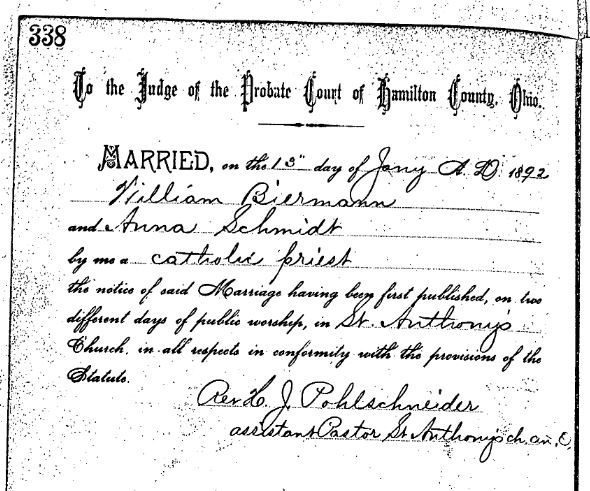 338
To the Judge of the Probate Court of Hamilton County, Ohio.
MARRIED, on the 13" day of Jany A.D. 1892
William Biermann
and Anna Schmidt
by me a catholic priest
the notice of said Marriage having been first published, on two
different days of public worship, in St. Anthony's
Church, in all respects in conformity with the provisions of the
Statute.
Rev H. J. Pohlschneider
assistant Pastor St Anthony's ch. Cin. O.